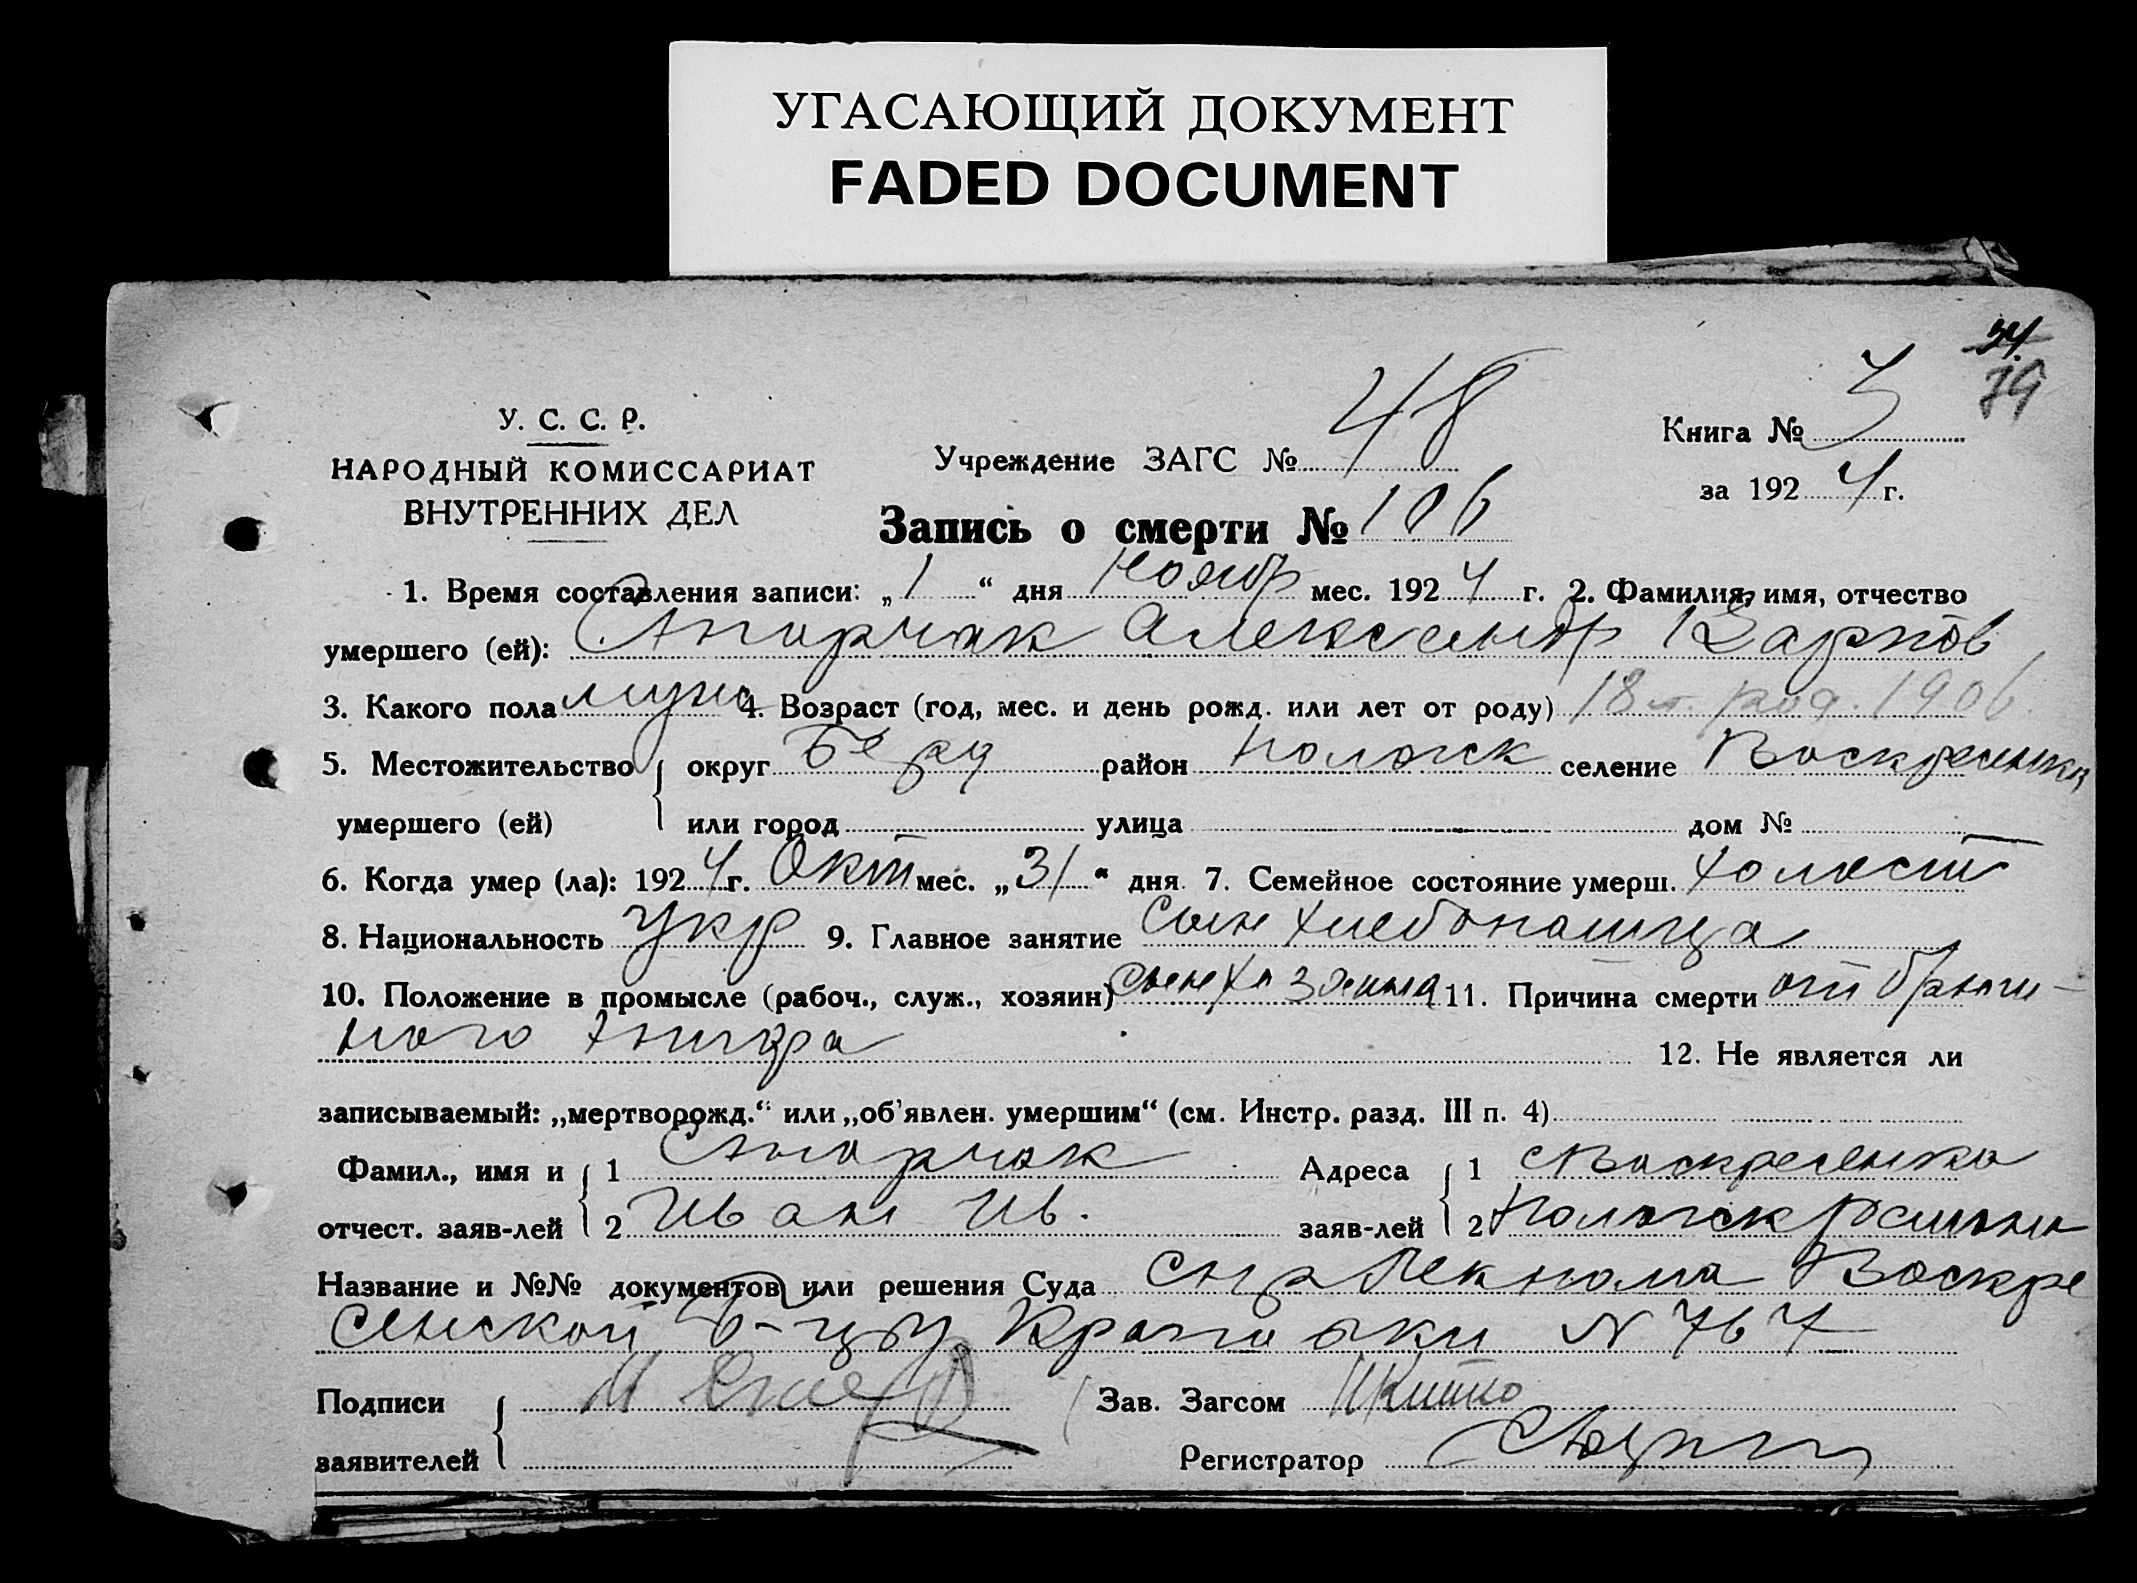 УГАСАЮЩИЙ ДОКУМЕНТ
FADED DOCUMENT
34
79
У. С. С. Р.
НАРОДНЫЙ КОМИССАРИАТ
ВНУТРЕННИХ ДЕЛ
Учреждение ЗАГС № 48
Книга № 3
за 1924 г.
Запись о смерти № 106
1. Время составления записи: „1“ дня Ноябр мес. 1924 г. 2. Фамилия, имя, отчество
умершего (ей): Александр Карпов
3. Какого пола муж 4. Возраст (год, мес. и день рожд. или лет от роду) 18 л. род. 1906
5. Местожительство округ Берд район Положск селение Воскресенка
умершего (ей) или город улица дом №
6. Когда умер (ла): 1924 г. Окт мес. „31“ дня 7. Семейное состояние умерш. холост
8. Национальность укр 9. Главное занятие сын хлебопашца
10. Положение в промысле (рабоч., служ., хозяин) сын хозяина 11. Причина смерти от брюш-
ного тифа
12. Не является ли
записываемый: „мертворожд.“ или „об'явлен. умершим“ (см. Инстр. разд. III п. 4)
Фамил., имя и 1 Адреса 1 с Воскресенка
отчест. заяв-лей 2 Иван Ив. заяв-лей 2 Положск район
Название и №№ документов или решения Суда Воскре
сенской N 767
Подписи Зав. Загсом
заявителей Регистратор